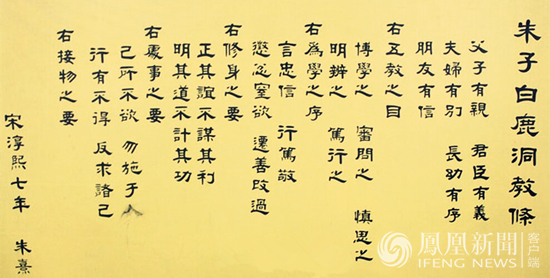 朱子白鹿洞教條
父子有親 君臣有義
夫婦有別 長幼有序
朋友有信
右五教之目
博學之 審問之 慎思之
明辨之 篤行之
右為學之序
言忠信 行篤敬
懲忿窒欲 遷善改過
右修身之要
正其誼不謀其利
明其道不計其功
右處事之要
己所不欲 勿施于人
行有不得 反求諸己
右接物之要
宋淳熙七年 朱熹
鳳凰新聞 客户端
IFENG NEWS